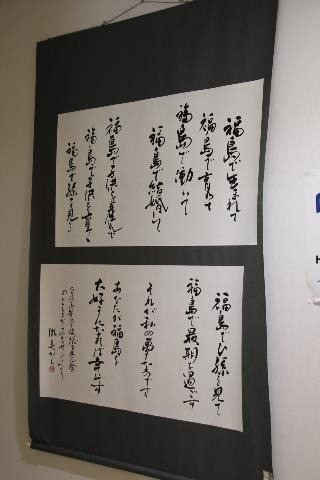 福島で生まれて
福島で育って
福島で働いて
福島で結婚して
福島で子供を産んで
福島で子供を育てて
福島で孫を見て
福島でひ孫を見て
福島で最期を過ごす
それが私の夢なのです
あなたが福島を
大好きになれば幸せです